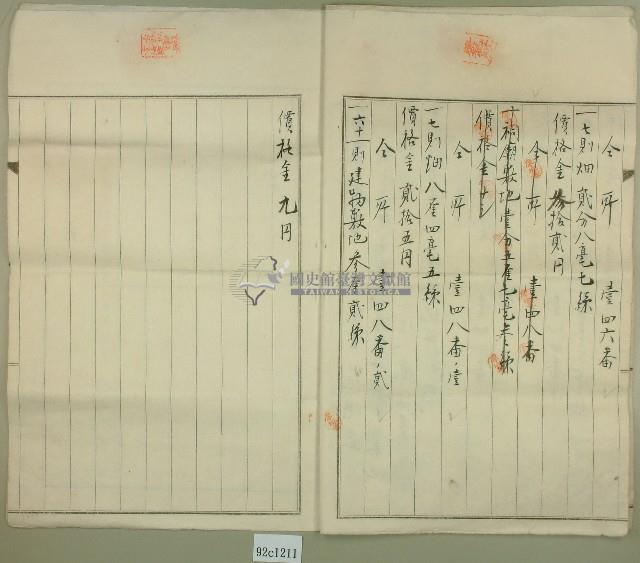 仝所 壹四六番
一七則畑貳分八毫七絲
價格金参拾貳円
仝所 壹四八番
一祠廟敷地壹分五厘七毫
價格金十
仝所 壹四八番ノ壹
一七則畑八厘四毫五絲
價格金貳拾五円
仝所 壹四八番ノ貳
一六十一則建物敷地参厘貳絲
價格金九円
國史館臺灣文獻館
TAIWAN HISTORICA
92c1211